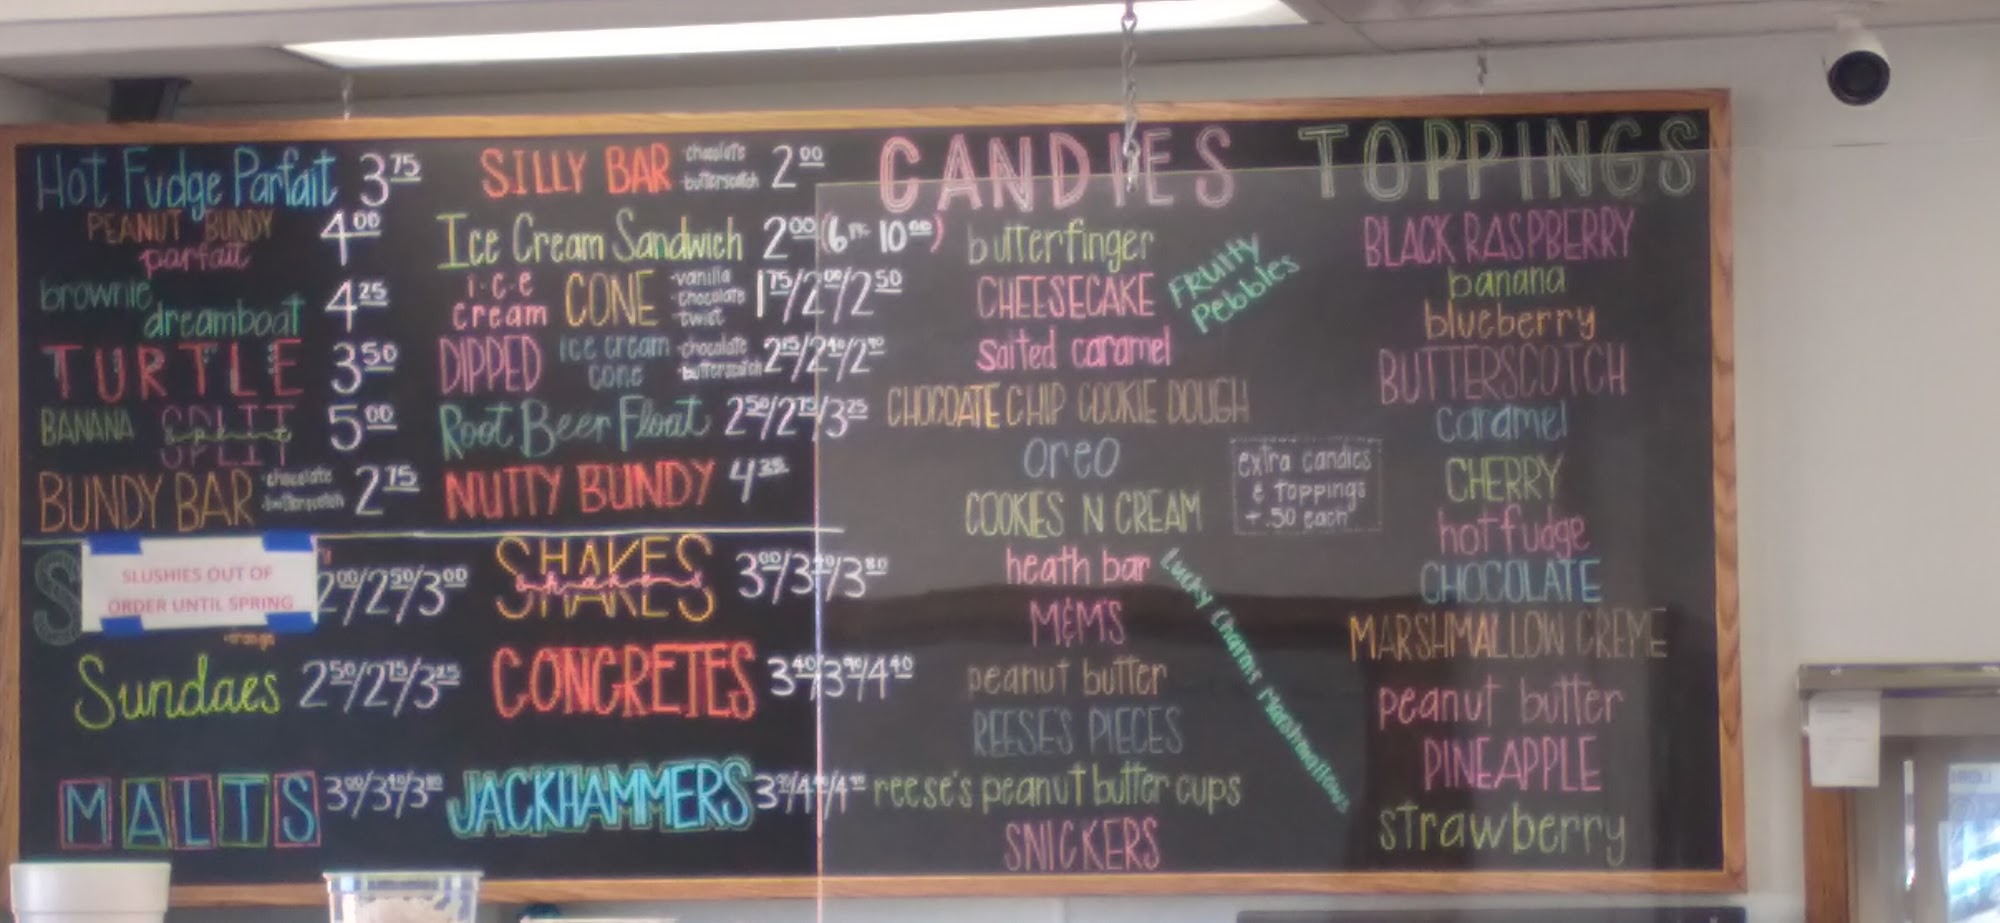 Hot Fudge Parfait 3.75
PEANUT BUNDY
parfait 4.00
brownie
dreamboat 4.25
TURTLE 3.50
BANANA SPLIT 5.00
BUNDY BAR -chocolate
-butterscotch 2.75
SILLY BAR -chocolate
-butterscotch 2.00
Ice Cream Sandwich 2.00 (6 PK 10.00)
ice
cream CONE -vanilla
-chocolate
-twist 1.75/2.00/2.50
DIPPED ice cream
cone -chocolate
-butterscotch
Root Beer Float 2.50/2.75/3.25
NUTTY BUNDY 4.25
S
SLUSHIES OUT OF
ORDER UNTIL SPRING
-orange
2.00/2.50/3.00
Sundaes 2.50/2.75/3.25
MALTS
SHAKES
shakes
CONCRETES 3.40/3.90/4.40
JACKHAMMERS
CANDIES
butterfinger
CHEESECAKE
salted caramel
CHOCOATE CHIP COOKIE DOUGH
oreo
COOKIES N CREAM
heath bar
M&M'S
peanut butter
REESE'S PIECES
reese's peanut butter cups
SNICKERS
Fruity
Pebbles
extra candies
& toppings
+.50 each
Lucky Charms Marshmallows
TOPPINGS
BLACK RASPBERRY
banana
blueberry
BUTTERSCOTCH
caramel
CHERRY
hot fudge
CHOCOLATE
MARSHMALLOW CREME
peanut butter
PINEAPPLE
strawberry